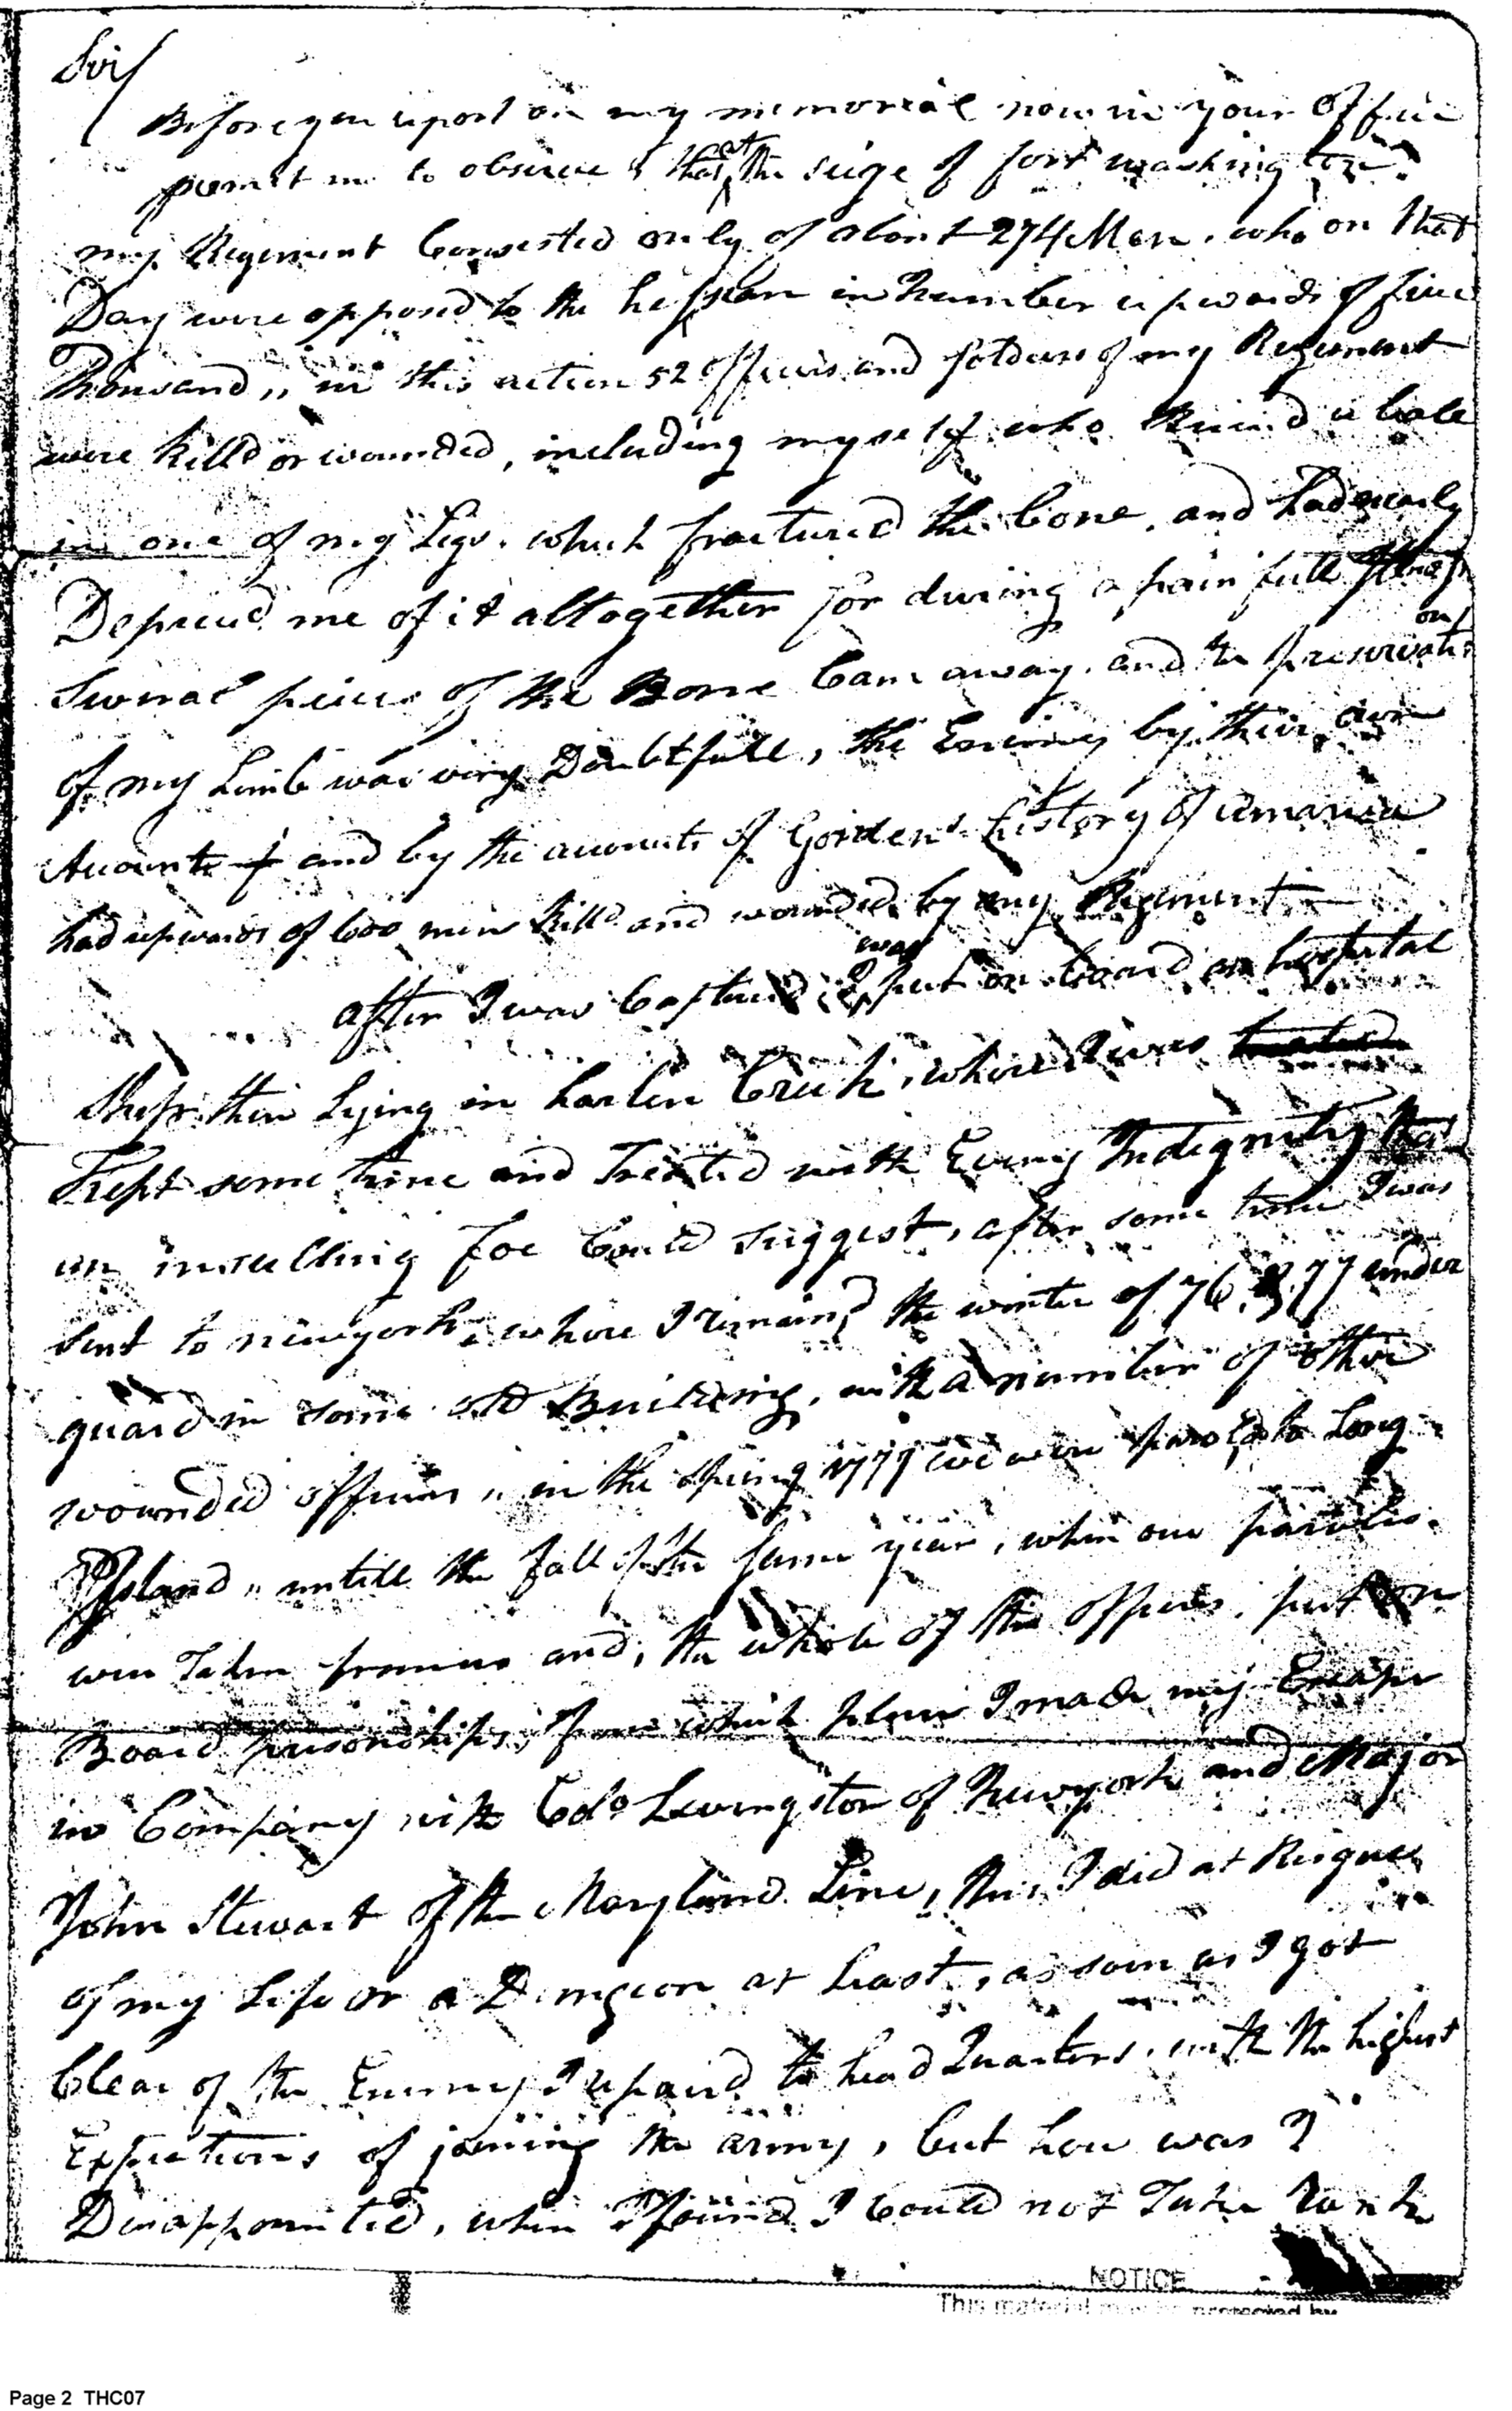 Sir/
Before you report on my memorial now in your Office
permit me to observe, that at the seige of fort washington
my Regiment Consisted only of about 274 Men, who on that
Day were opposed to the hessian in Number upwards of five
Thousand,, in this action 52 officers and soldiers of my Regiment
were killd or wounded, including myself who Received a ball
in one of my Legs, which fractured the bone, and had nearly
Deprived me of it altogether for during a painfull Illness
Several peices of the Bone Came away, and the preservation
of my Limb was very Doubtfull, the Enemy by their own
Accounts and by the accounts of Gordens history of America
had upwards of 600 men killd and wounded by my Regiment
after I was Captured I was put on board an hospital
Ship then Lying in harlem Creek, where I was
Kept some time and Treated with Every Indignity that
an insulting foe Could suggest, after some time I was
sent to newyork, where I remaind the winter of 76 & 77 under
guard in some old Building, with a number of other
wounded officers,, in the spring 1777 we were parold to Long
Island,, untill the fall of the same year, when our paroles
were Taken from us and, the whole of the officers, put on
Board prisonships, from which place I made my Escape
in Company with Colo Livingston of Newyork and Major
John Stewart of the Maryland Line, this I did at Risque
of my Life or a Dungeon at Least, as soon as I got
Clear of the Enemy I repaird to head Quarters, with the highest
Expectations of joining the army, but how was I
Disappointed, when I found I Could not Take Rank
NOTICE
This material may be protected by
Page 2 THC07